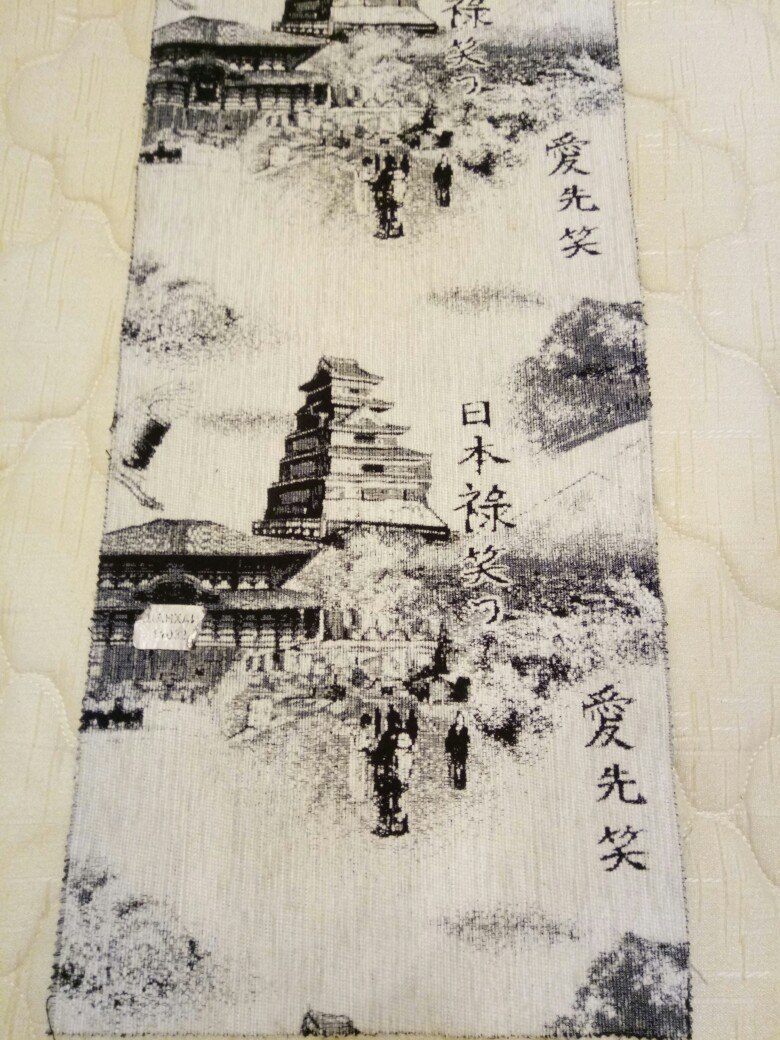 祿笑つ
愛先笑
日本祿笑つ
愛先笑